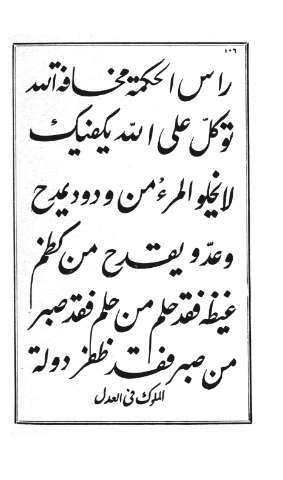 ١٠٦
راس الحكمة مخافة الله
توكل على الله يكفيك
لا يخلو المرء من ودود يمدح
وعدو يقدح من كظم
غيظه فقد حلم من حلم فقد صبر
من صبر فقد ظفر دولة
الملوك فى العدل